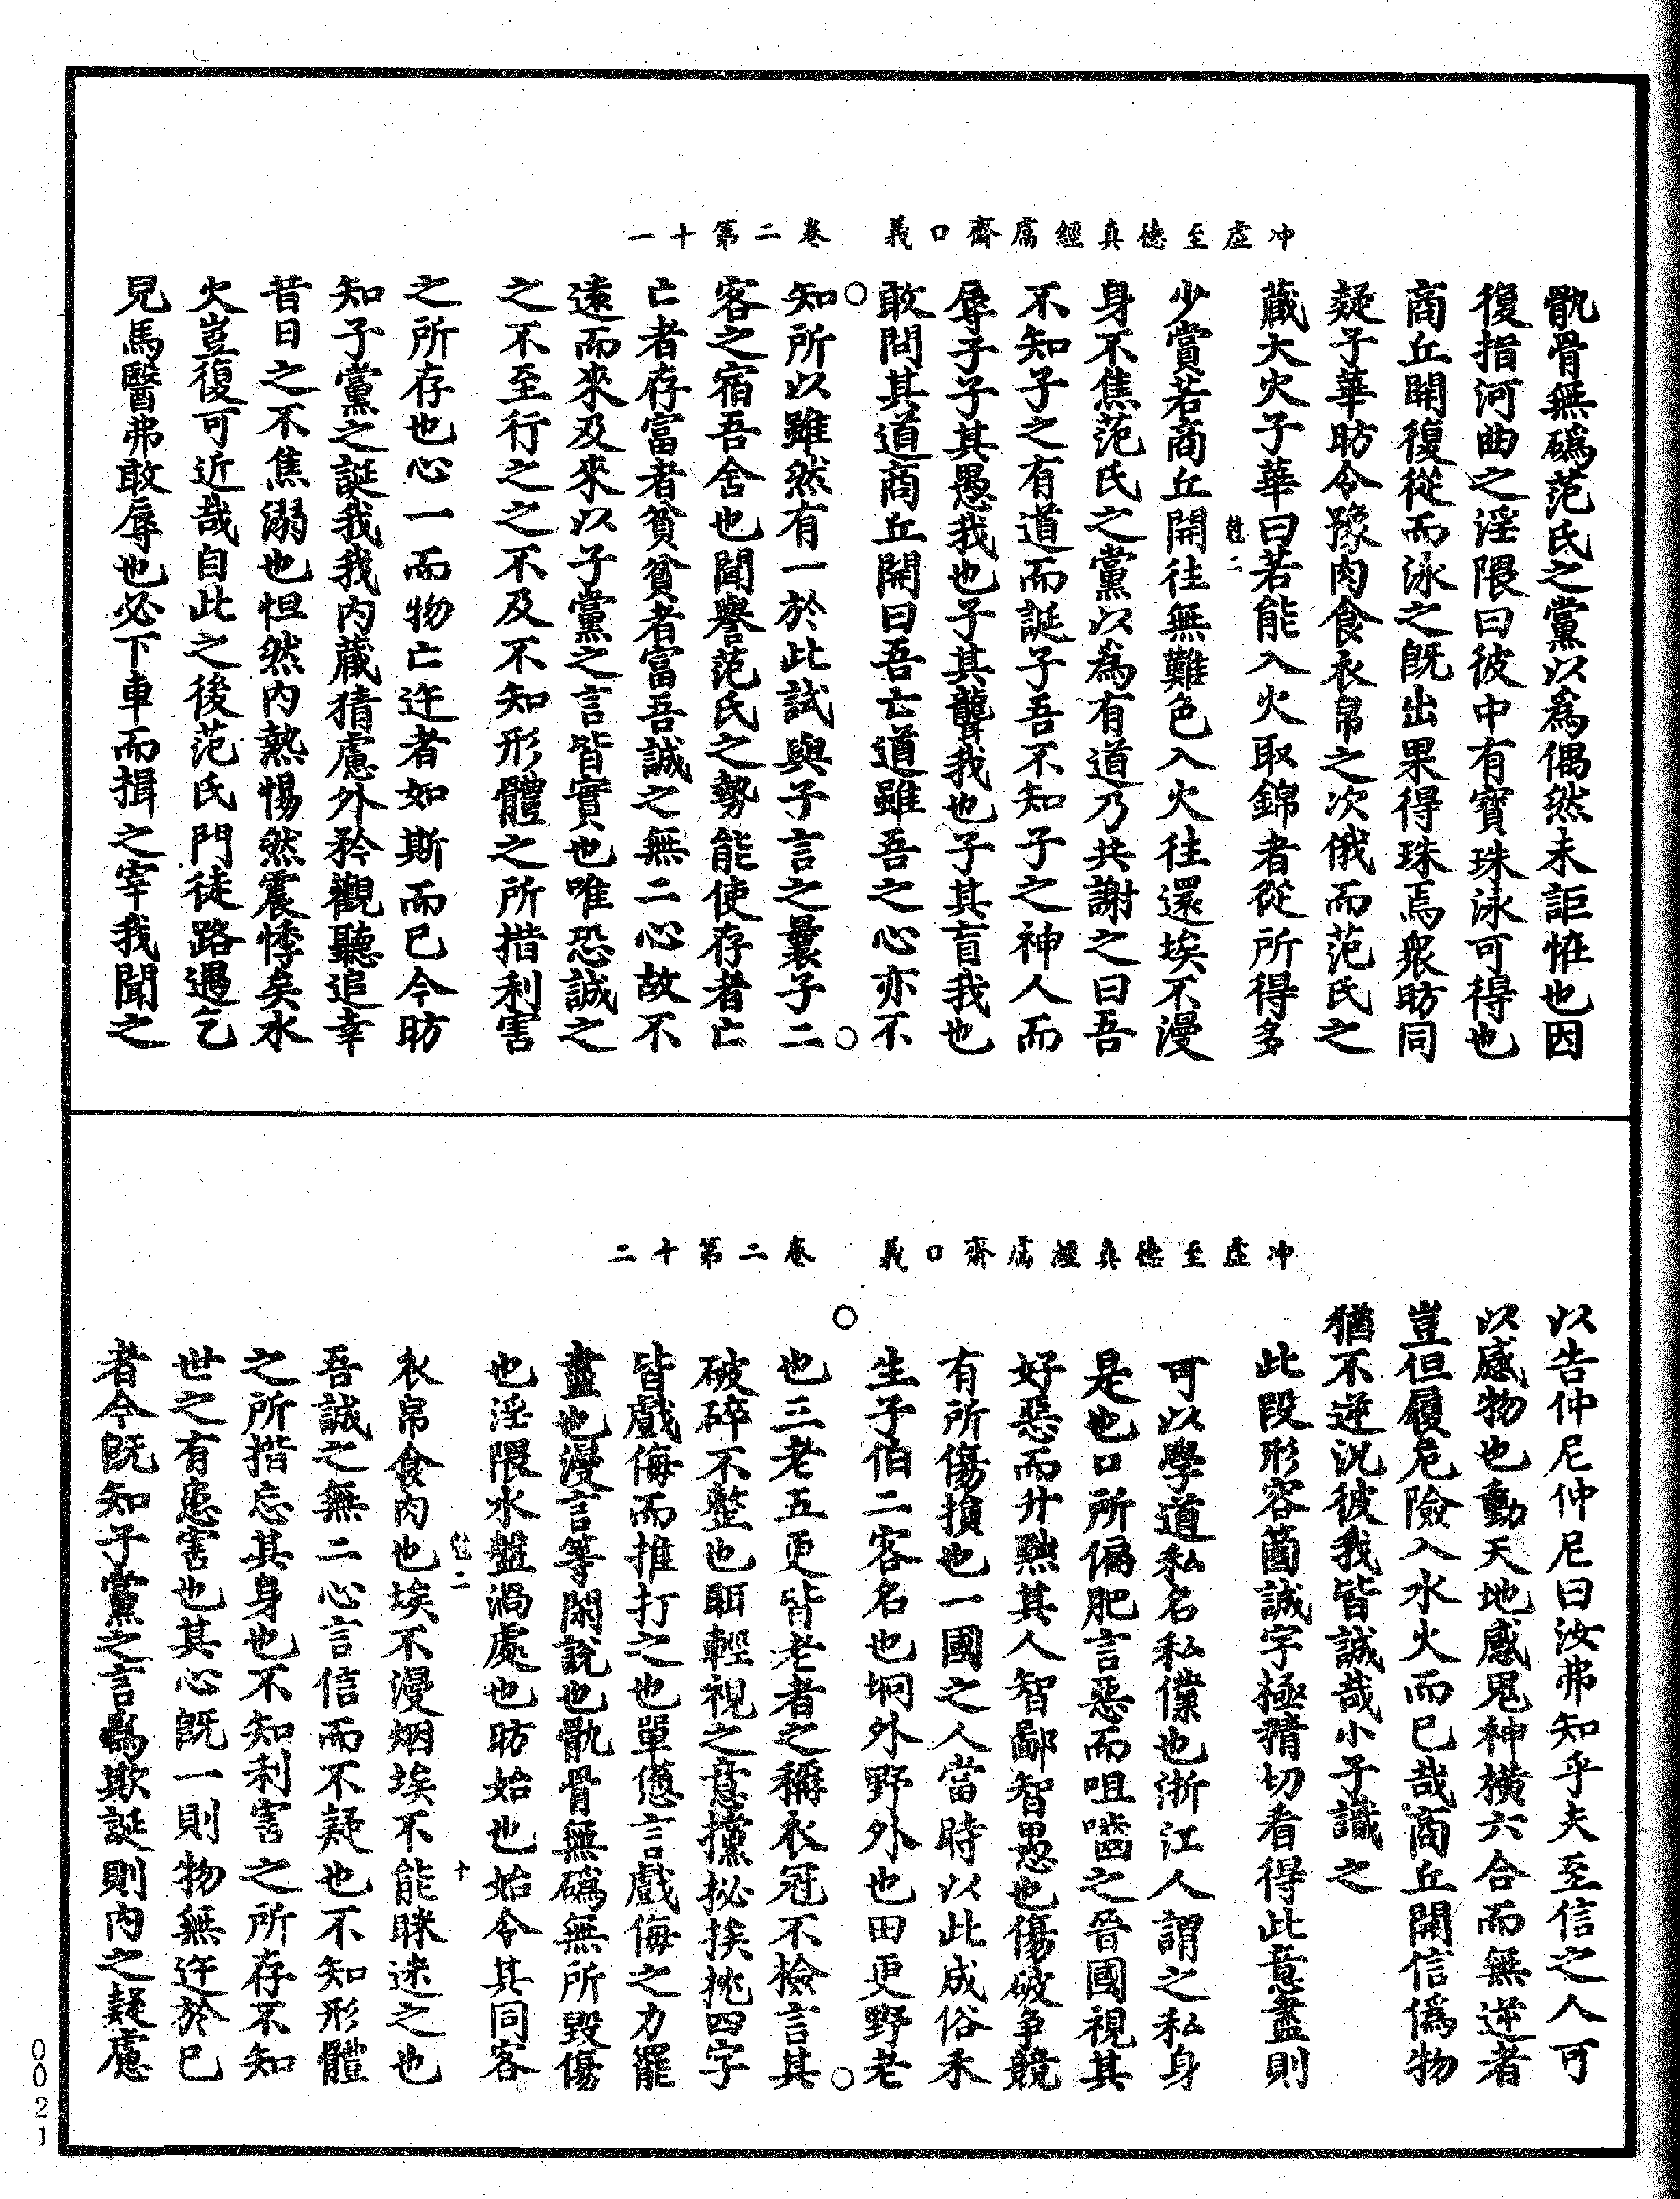 冲虛至德真經鬳齋口義　卷二第十一
骩骨無䃣范氏之黨以爲偶然未詎怪也因
復指河曲之淫隈曰彼中有寶珠泳可得也
商丘開復從而泳之旣出果得珠焉衆昉同
疑子華昉令豫肉食衣帛之次俄而范氏之
藏大火子華曰若能入火取錦者從所得多
少賞若商丘開往無難色入火往還埃不漫
身不焦范氏之黨以為有道乃共謝之曰吾
不知子之有道而誕子吾不知子之神人而
辱子子其愚我也子其聾我也子其盲我也
敢問其道商丘開曰吾亡道雖吾之心亦不
知所以雖然有一於此試與子言之曩子二
客之宿吾舍也聞譽范氏之勢能使存者亡
亡者存富者貧貧者富吾誠之無二心故不
遠而來及來以子黨之言皆實也唯恐誠之
之不至行之之不及不知形體之所措利害
之所存也心一而物亡迕者如斯而已今昉
知子黨之誕我我內藏猜慮外矜觀聽追幸
昔日之不焦溺也怛然內熱惕然震悸矣水
火豈復可近哉自此之後范氏門徒路遇乞
兒馬醫弗敢辱也必下車而揖之宰我聞之
冲虛至德真經鬳齋口義　卷二第十二
以告仲尼仲尼曰汝弗知乎夫至信之人可
以感物也動天地感鬼神橫六合而無逆者
豈但履危險入水火而已哉商丘開信僞物
猶不逆況彼我皆誠哉小子識之
此段形容箇誠字極精切看得此意盡則
可以學道私名私僕也浙江人謂之私身
是也口所偏肥言惡而咀嚙之晉國視其
好惡而升黜其人智鄙智愚也傷破爭競
有所傷損也一國之人當時以此成俗禾
生子伯二客名也坰外野外也田更野老
也三老五更皆老者之稱衣冠不檢言其
破碎不整也眲輕視之意攩㧙挨抌四字
皆戲侮而推打之也單憊言戲侮之力罷
盡也漫言等閑說也骩骨無䃣無所毀傷
也淫隈水盤渦處也昉始也始令其同客
衣帛食肉也埃不漫烟埃不能眯迷之也
吾誠之無二心言信而不疑也不知形體
之所措忘其身也不知利害之所存不知
世之有患害也其心旣一則物無迕於已
者今旣知子黨之言爲欺誕則內之疑慮
0021